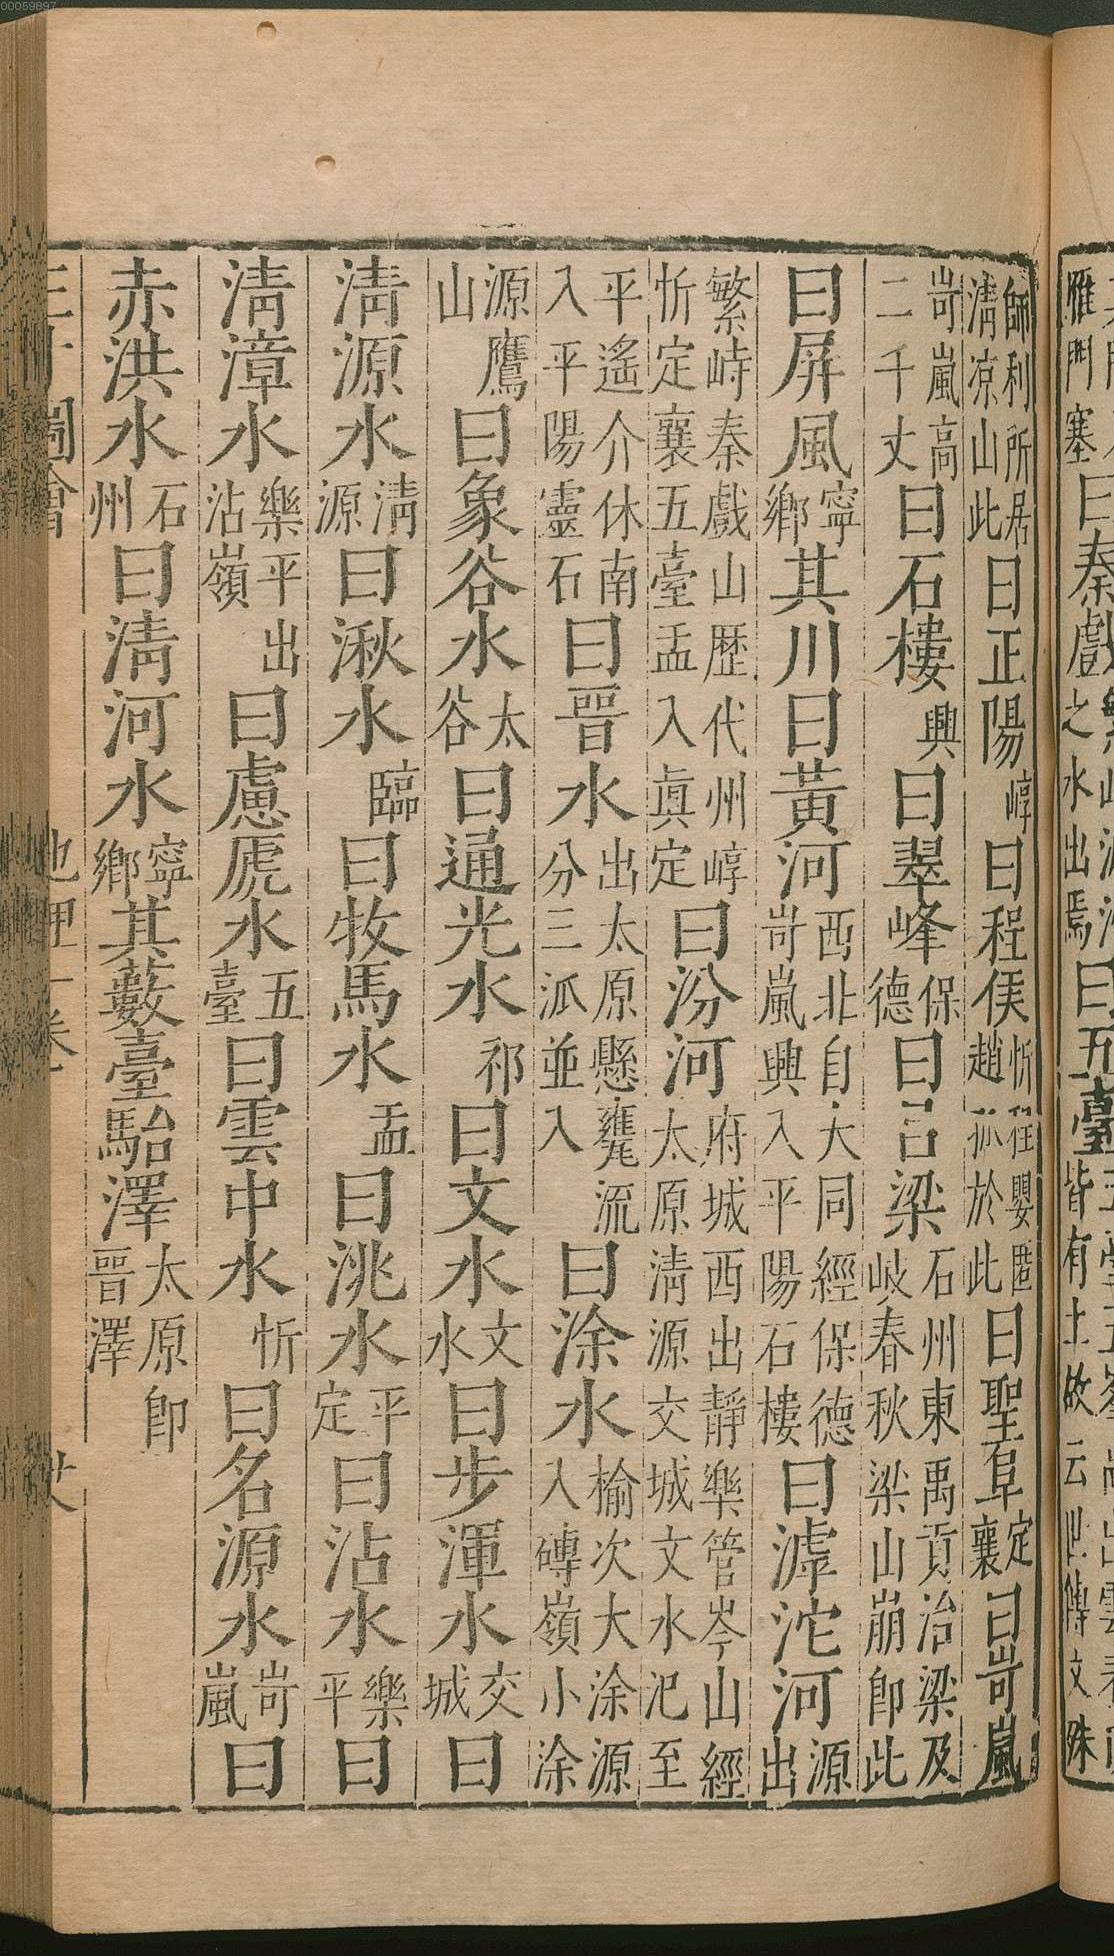 雁門塞曰秦戲之水出焉曰五臺皆有土故云世傳文殊
師利所居清凉山此曰正陽崞曰程侯忻程嬰匿趙孤於此曰聖阜定襄曰岢嵐
岢嵐高二千丈曰石樓興曰翠峰保德曰呂梁石州東禹貢治梁及岐春秋梁山崩卽此
曰屏風寧鄉其川曰黃河西北自大同經保德岢嵐興入平陽石樓曰滹沱河源出
繁峙秦戲山歷代州崞忻定襄五臺盂入眞定曰汾河府城西出靜樂管岑山經太原淸源交城文水汜至
平遙介休南入平陽靈石曰晉水出太原懸甕流分三派並入曰涂水榆次大涂源入磚嶺小涂
源鷹山曰象谷水太谷曰通光水祁曰文水文水曰步渾水交城曰
淸源水淸源曰湫水臨曰牧馬水盂曰洮水平定曰沾水樂平曰
淸漳水樂平出沾嶺曰慮虒水五臺曰雲中水忻曰名源水岢嵐曰
赤洪水石州曰淸河水寧鄉其藪臺駘澤太原卽晉澤
三才圖會 地理一卷 廿八
00059897